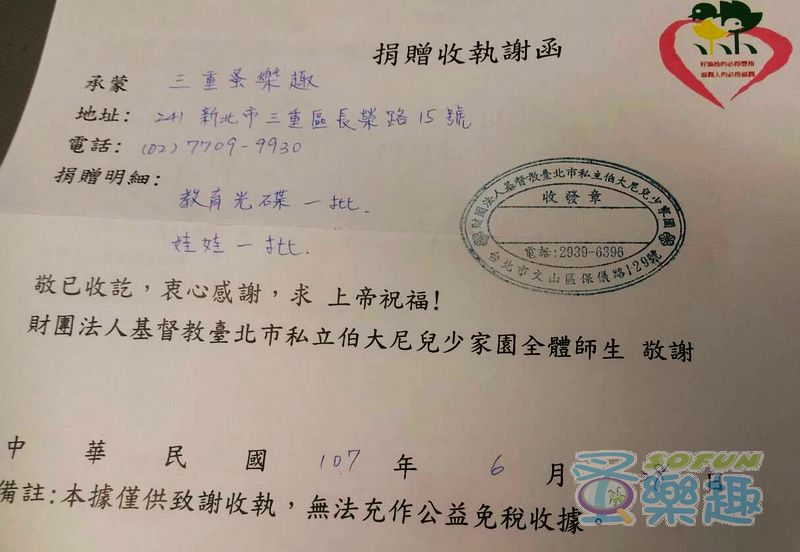 捐贈收執謝函
好施捨的必得豐裕
滋潤人的必得滋潤
承蒙 三重蚤樂趣
地址: 241 新北市三重區長榮路15號
電話: (02) 7709-9930
捐贈明細:
教育光碟一批.
娃娃一批.
財團法人基督教臺北市私立伯大尼兒少家園
收發章
電話:2939-6396
台北市文山區保儀路129號
敬已收訖,衷心感謝,求 上帝祝福!
財團法人基督教臺北市私立伯大尼兒少家園全體師生 敬謝
中華民國 107 年 6 月 日
備註:本據僅供致謝收執,無法充作公益免稅收據。
SOFUN
蚤樂趣